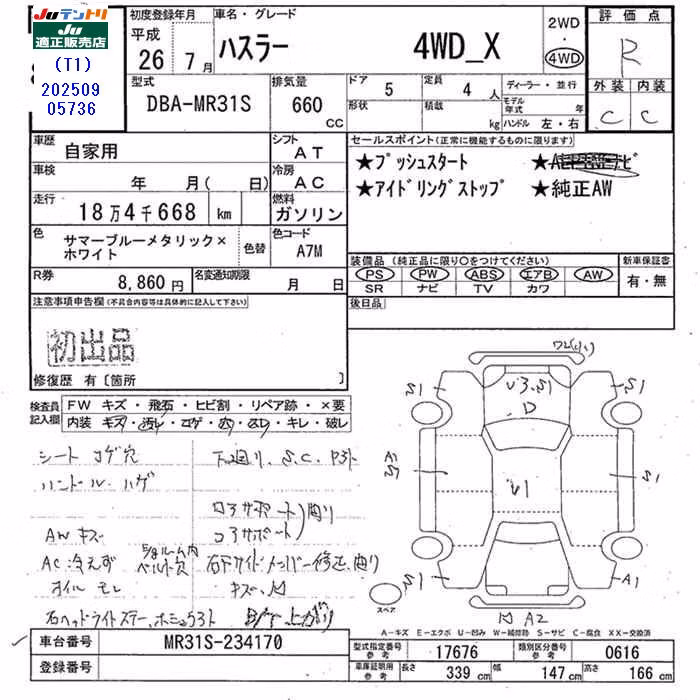 Juテントリ
Ju
適正販売店
(T1)
202509
05736
初度登録年月
平成
26年7月
車名・グレード
ハスラー 4WD_X
2WD
・
4WD
評価点
R
外装 内装
C C
型式
DBA-MR31S
排気量
660
CC
ドア
5
形状
定員
4人
積載
kg
ディーラー・並行
モデル年式 年
ハンドル 左・右
車歴
自家用
シフト
AT
車検
年 月( 日)
冷房
AC
走行
18万4千668 km
燃料
ガソリン
色
サマーブルーメタリック×
ホワイト
色替
色コード
A7M
R券
8,860円
名変通知期限
月 日
セールスポイント(正常に機能するものに限ります)
★プッシュスタート
★アイドリングストップ
★純正AW
装備品(純正品に限り○をつけてください)
PS PW ABS エアB AW
SR ナビ TV カワ
新車保証書
有・無
後日品
注意事項申告欄(不具合内容等は具体的に記入して下さい)
初出品
修復歴 有〔箇所 〕
検査員
記入欄
FW キズ・飛石・ヒビ割・リペア跡・×要
内装 キズ・汚レ・コゲ・穴・スレ・キレ・破レ
シート コゲ穴
ハンドル ハゲ
AWキズ
AC冷えず
オイルモレ
下廻り、S.C.
コアサポート
S1 S1
V3.S1
D
A1
S7
V1
S1
S1 A1
スペア
A2
A-キズ E-エクボ U-凹み W-補修跡 S-サビ C-腐食 XX-交換済
車台番号
MR31S-234170
登録番号
型式指定番号
参考
17676
類別区分番号
参考
0616
車庫証明用
参考
長さ 339cm
幅 147cm
高さ 166cm